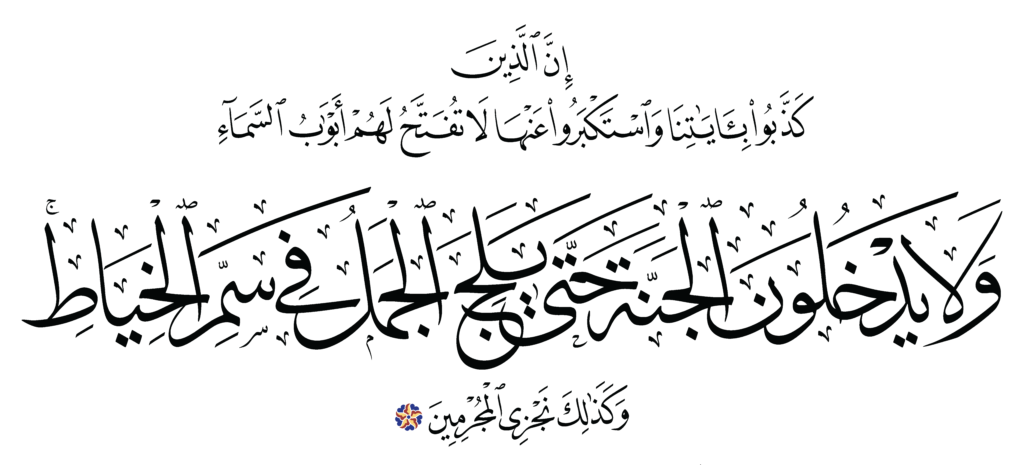 إِنَّ ٱلَّذِينَ
كَذَّبُوا۟ بِـَٔايَـٰتِنَا وَٱسْتَكْبَرُوا۟ عَنْهَا لَا تُفَتَّحُ لَهُمْ أَبْوَٰبُ ٱلسَّمَآءِ
وَلَا يَدْخُلُونَ ٱلْجَنَّةَ حَتَّىٰ يَلِجَ ٱلْجَمَلُ فِى سَمِّ ٱلْخِيَاطِ ۚ
وَكَذَٰلِكَ نَجْزِى ٱلْمُجْرِمِينَ